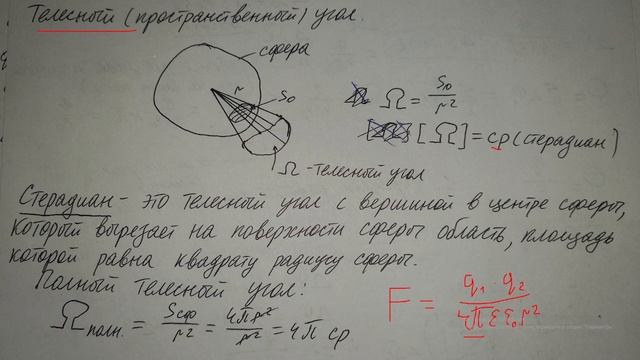 Телесный (пространственный) угол.
сфера
r
S₀
Ω = S₀/r²
[Ω] = ср (стерадиан)
Ω - телесный угол
Стерадиан - это телесный угол с вершиной в центре сферы,
который вырезает на поверхности сферы область, площадь
которой равна квадрату радиусу сферы.
Полный телесный угол:
Ω полн. = Sсф/r² = 4πr²/r² = 4π ср
F = q₁ · q₂ / 4π ε ε₀ r²